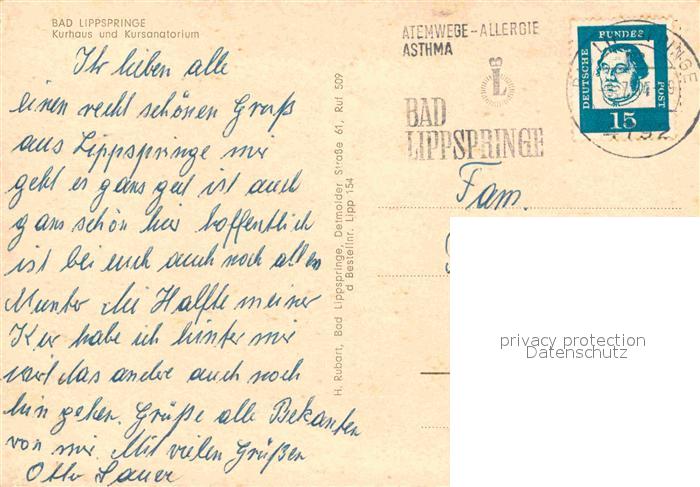 BAD LIPPSPRINGE
Kurhaus und Kursanatorium
Ihr lieben alle
einen recht schönen Gruß
aus Lippspringe mir
geht es gans gut ist auch
gans schön hier hoffentlich
ist bei euch auch noch alles
Munter die Halfte meiner
Kur habe ich hinter mir
wirt das andre auch noch
hin gehen. Grüße alle Bekanten
von mir. Mit vielen Grüßen
Otto Sauer
H. Rubart, Bad Lippspringe, Detmolder Straße 61, Ruf 509
d Bestellnr. Lipp 154
ATEMWEGE-ALLERGIE
ASTHMA
L
BAD
LIPPSPRINGE
DEUTSCHE
BUNDES
POST
15
Fam.
privacy protection
Datenschutz